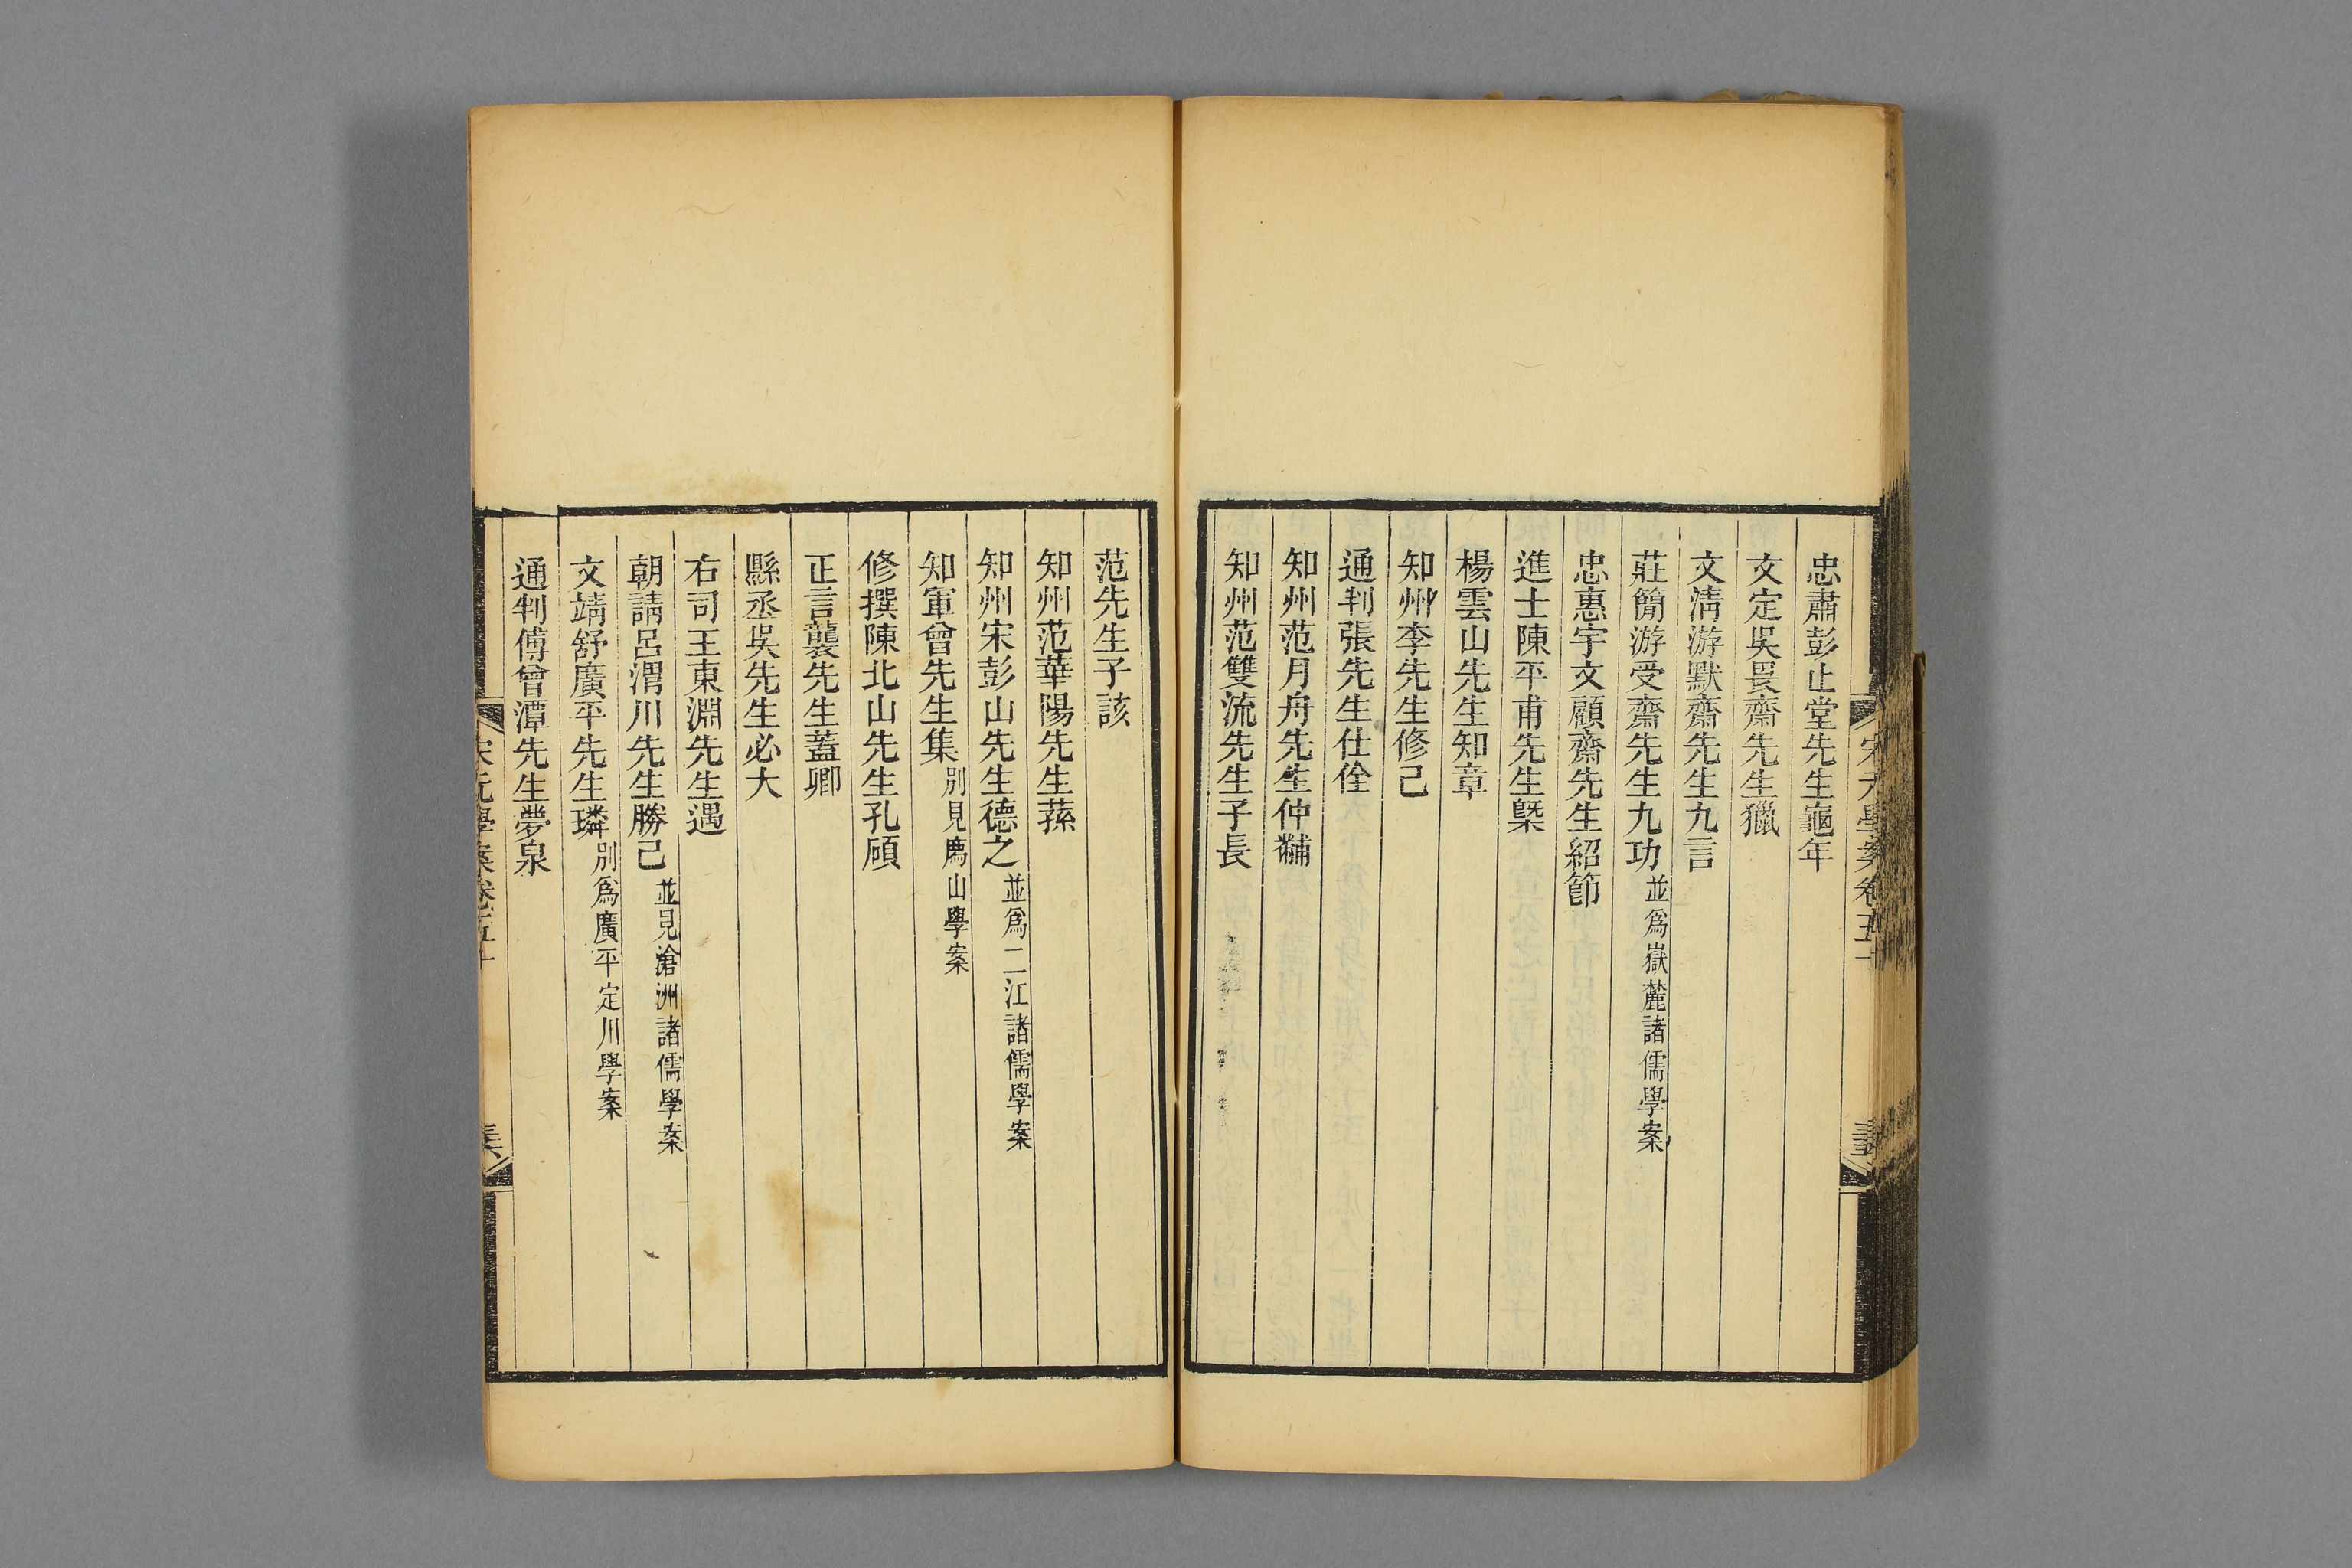 忠肅彭止堂先生龜年
文定吳畏齋先生獵
文清游默齋先生九言
莊簡游受齋先生九功並爲嶽麓諸儒學案
忠惠宇文顧齋先生紹節
進士陳平甫先生槩
楊雲山先生知章
知州李先生修己
通判張先生仕佺
知州范月舟先生仲黼
知州范雙流先生子長
范先生子該
知州范華陽先生蓀
知州宋彭山先生德之並爲二江諸儒學案
知軍曾先生集別見廌山學案
修撰陳北山先生孔碩
正言龔先生蓋卿
縣丞吳先生必大
右司王東淵先生遇
朝請呂渭川先生勝己並見滄洲諸儒學案
文靖舒廣平先生璘別爲廣平定川學案
通判傅曾潭先生夢泉
宋元學案卷五十